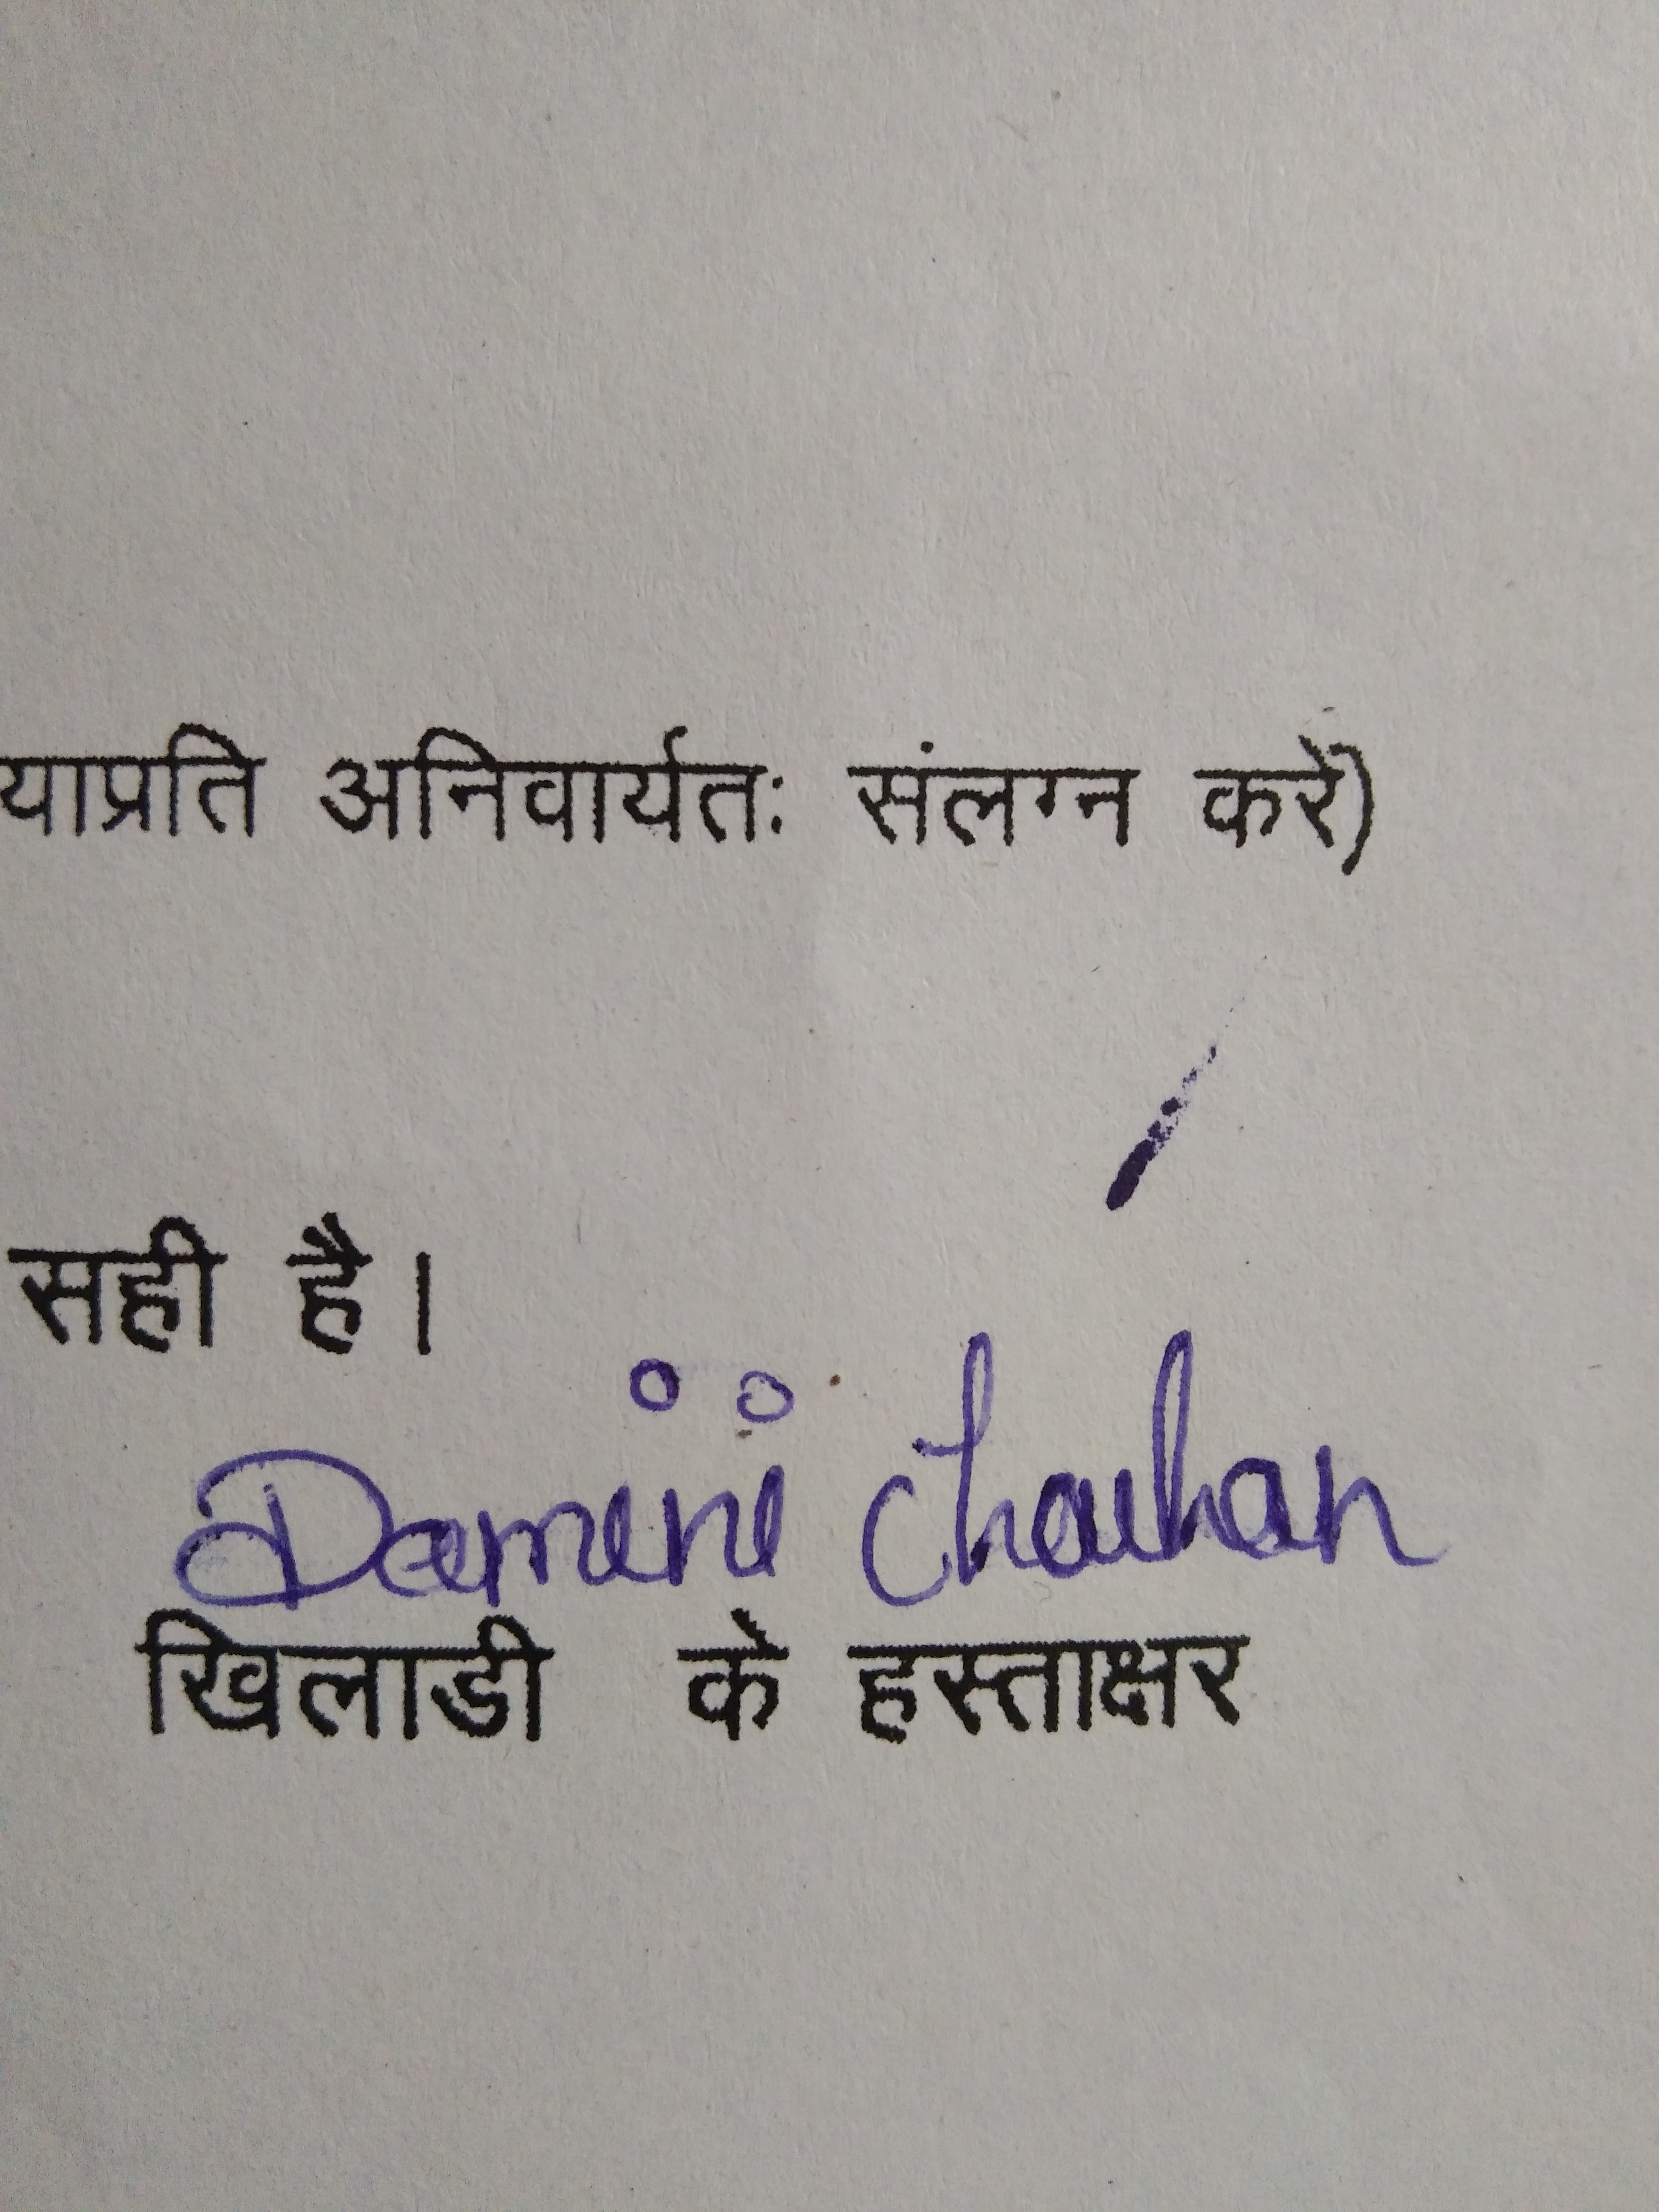 याप्रति अनिवार्यतः संलग्न करें)
सही है।
Damini Chauhan
खिलाडी के हस्ताक्षर